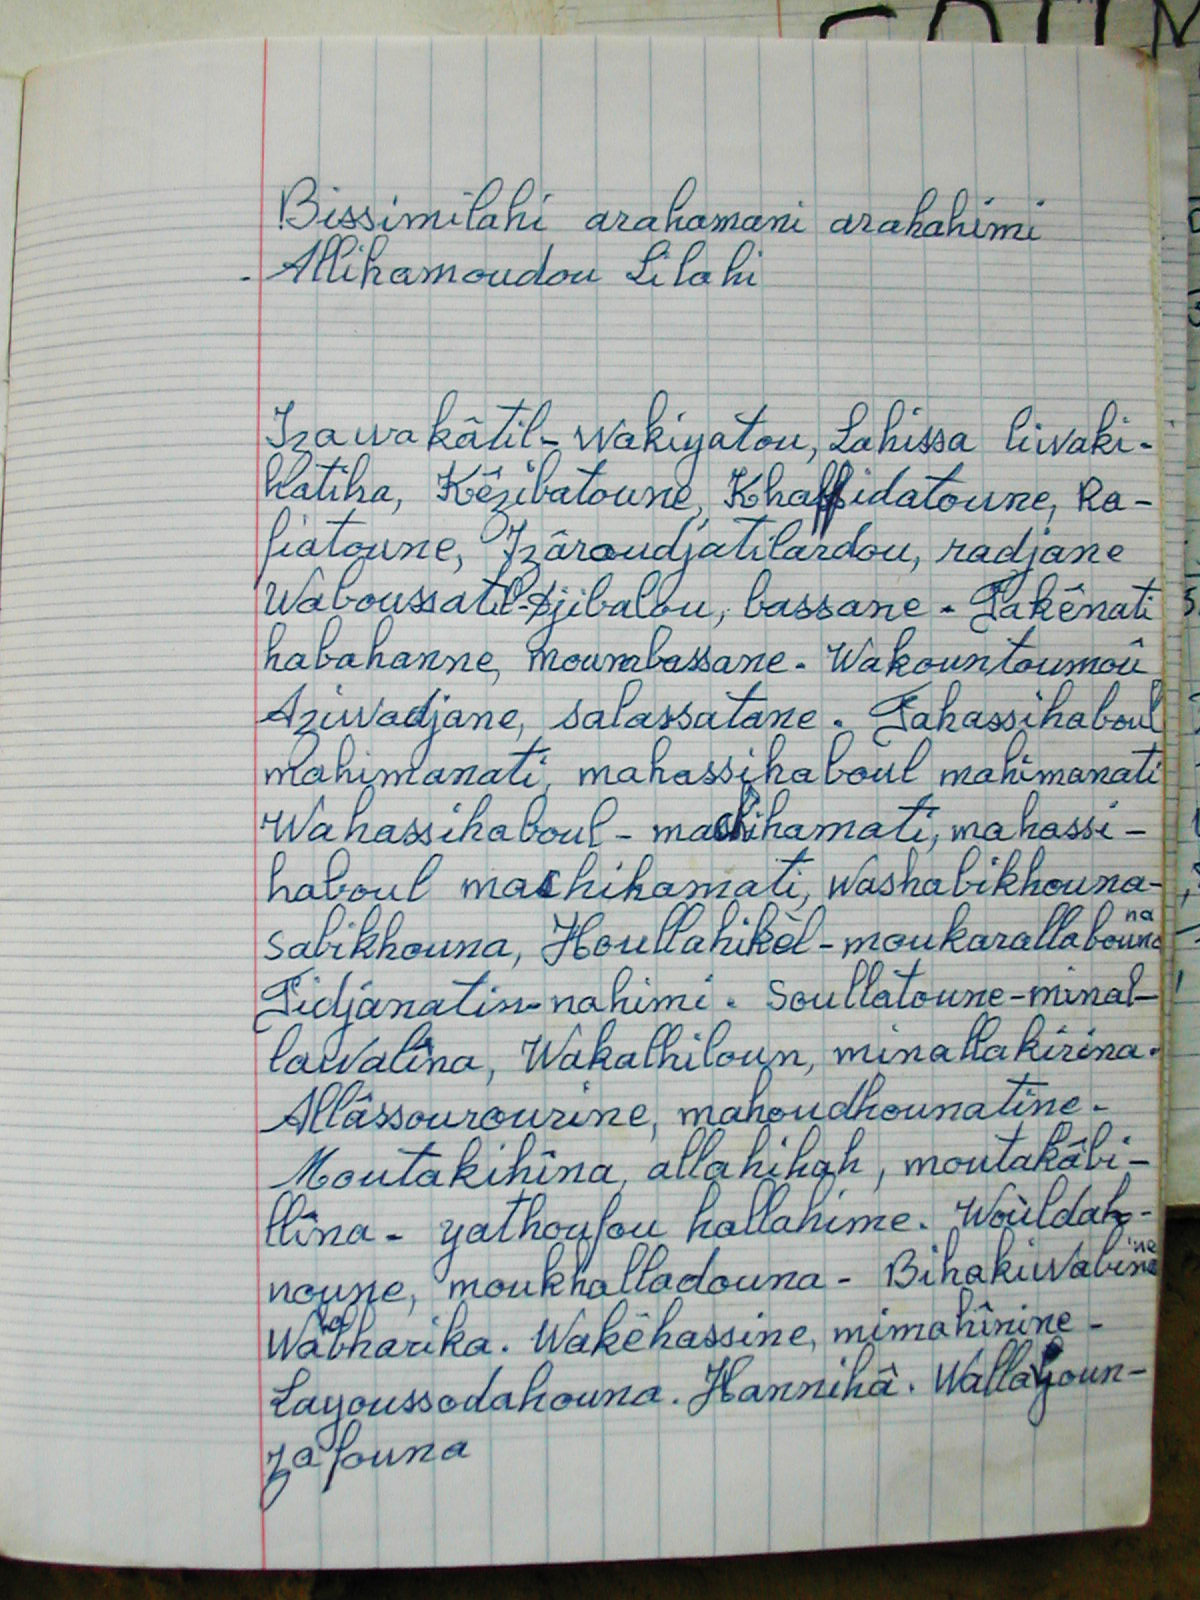 Bissimilahi arahamani arahahimi
- Allihamoudou Lilahi
Izawakâtil-Wakiyatou, Lahissa liwaki-
hatiha, Kêzibatoune, Khaffidatoune, Ra-
fiatoune, Izâraudjatilardou, radjane
Waboussatil-djibalou, bassane - Fakênati
habahanne, mounbassane - Wakountoumoû
Aziwadjane, salassatane. Fahassihaboul
mahimanati, mahassihaboul mahimanati
Wahassihaboul - machihamati, mahassi-
haboul machihamati, Washabikhouna-
sabikhouna, Houllahikèl - moukarallabouna
Fidjanatin-nahimi. Soullatoune-minal-
lawalîna, Wakalhiloun, minallakirina.
Allâssourourine, mahoudhounatine -
Moutakihîna, allahihah, moutakâbi-
llîna - yathoufou hallahime. Woùldah-
noune, moukhalladouna - Bihakiwabine
Wabharika. Wakêhassine, mimahînine -
Layoussodahouna. Hannihâ. Wallayoun-
zafouna